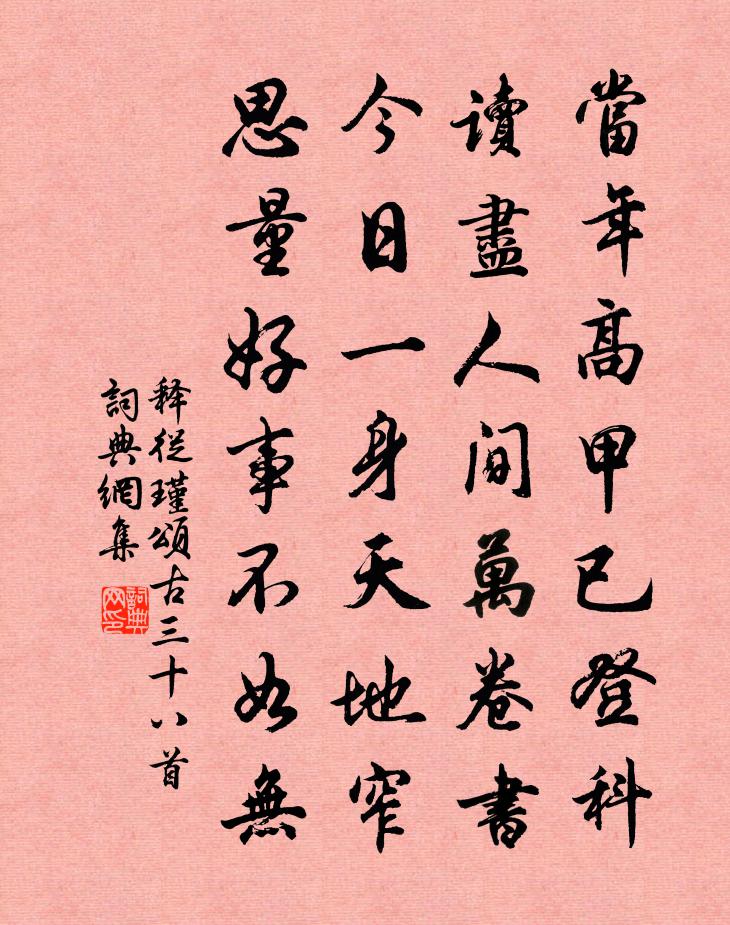 當年高甲已登科
讀盡人间萬卷書
今日一身天地窄
思量好事不如無
释從瑾頌古三十八首
詞典網集
詞典网印